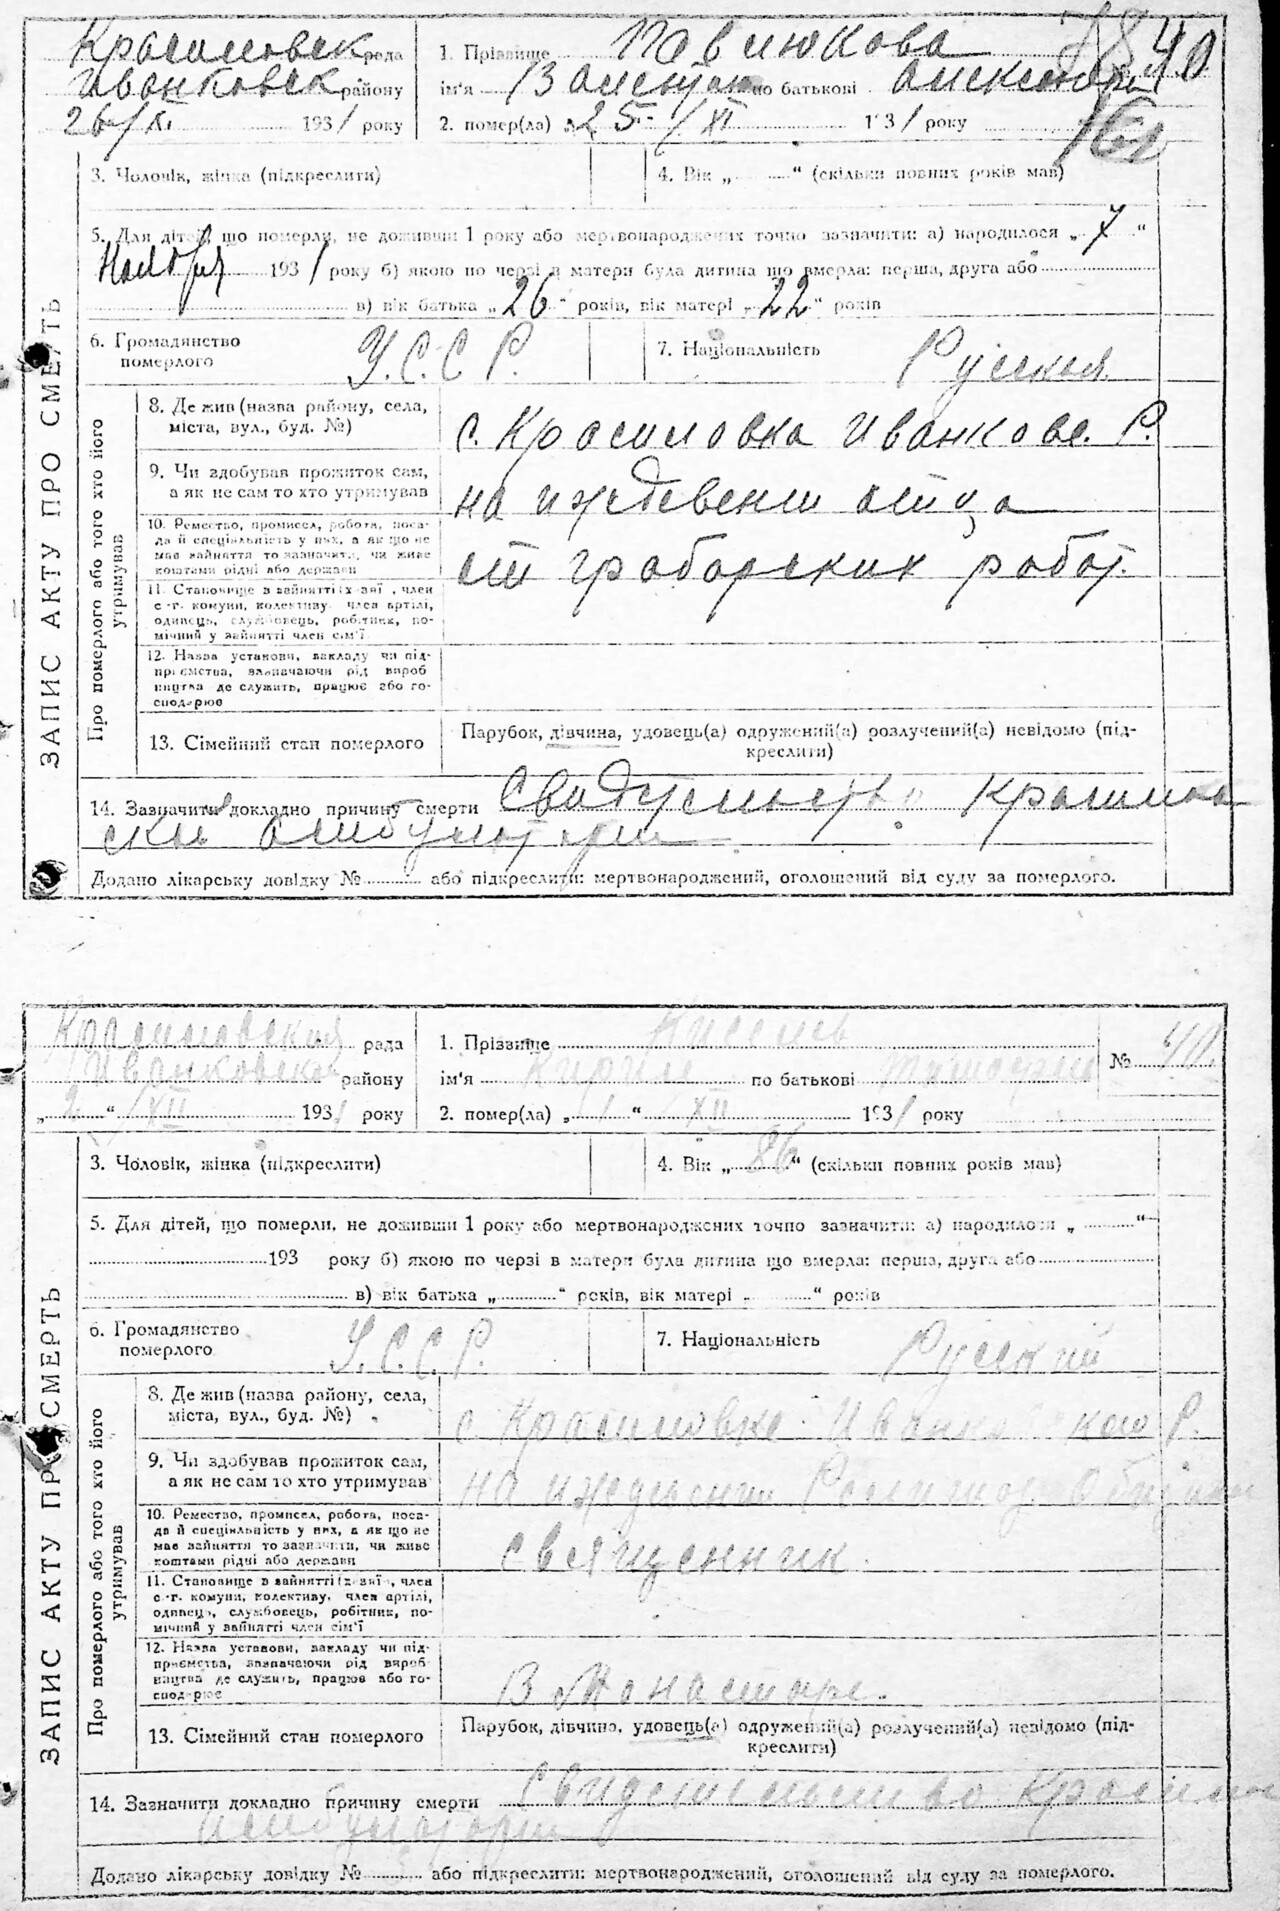 Красиловск рада
Иванковск району
26/XI 1931 року
1. Прізвище Павлюкова
40
ім'я по батькові
2. помер(ла) „25 /XI 1931 року
ЗАПИС АКТУ ПРО СМЕРТЬ
3. Чоловік, жінка (підкреслити)
4. Вік „ “ (скільки повних років мав)
5. Для дітей, що померли, не доживши 1 року або мертвонароджених точно зазначити: а) народилося „7“
Ноября 1931 року б) якою по черзі в матери була дитина що вмерла: перша, друга або
в) вік батька „26“ років, вік матері „22“ років
6. Громадянство
померлого
У.С.С.Р.
7. Національність Русская
Про померлого або того хто його
утримував
8. Де жив (назва району, села,
міста, вул., буд. №)
с. Красиловка Иванковс. Р.
9. Чи здобував прожиток сам,
а як не сам то хто утримував
на иждевении отца
10. Ремество, промисел, робота, поса-
да й спеціяльність у них, а як що не
має зайняття то зазначити, чи живе
коштами рідні або держави
от граборских работ.
11. Становище в зайнятті (хазяї, член
с.-г. комуни, колективу, член артілі,
одинець, службовець, робітник, по-
мічний у зайнятті член сім'ї
12. Назва установи, закладу чи під-
приємства, зазначаючи рід вироб
ництва де служить, працює або го-
сподарює
13. Сімейний стан померлого
Парубок, дівчина, удовець(а) одружений(а) розлучений(а) невідомо (під-
креслити)
14. Зазначити докладно причину смерти
амбулатории
Додано лікарську довідку № або підкреслити: мертвонароджений, оголошений від суду за померлого.
Красиловская рада
Иванковск району
„2“ /XII 1931 року
1. Прізвище Кисель
№ 40.
ім'я Кирил по батькові
2. помер(ла) „1“ XII 1931 року
ЗАПИС АКТУ ПРО СМЕРТЬ
3. Чоловік, жінка (підкреслити)
4. Вік „86“ (скільки повних років мав)
5. Для дітей, що померли, не доживши 1 року або мертвонароджених точно зазначити: а) народилося „ “
193 року б) якою по черзі в матери була дитина що вмерла: перша, друга або
в) вік батька „ “ років, вік матері „ “ років
6. Громадянство
померлого
У.С.С.Р.
7. Національність Русский
Про померлого або того хто його
утримував
8. Де жив (назва району, села,
міста, вул., буд. №)
с. Красиловке Иванковского Р.
9. Чи здобував прожиток сам,
а як не сам то хто утримував
на иждевении
10. Ремество, промисел, робота, поса-
да й спеціяльність у них, а як що не
має зайняття то зазначити, чи живе
коштами рідні або держави
священник
11. Становище в зайнятті (хазяї, член
с.-г. комуни, колективу, член артілі,
одинець, службовець, робітник, по-
мічний у зайнятті член сім'ї
12. Назва установи, закладу чи під-
приємства, зазначаючи рід вироб
ництва де служить, працює або го-
сподарює
В Монастыре.
13. Сімейний стан померлого
Парубок, дівчина, удовець(а) одружений(а) розлучений(а) невідомо (під-
креслити)
14. Зазначити докладно причину смерти Свидетельство
амбулатории
Додано лікарську довідку № або підкреслити: мертвонароджений, оголошений від суду за померлого.